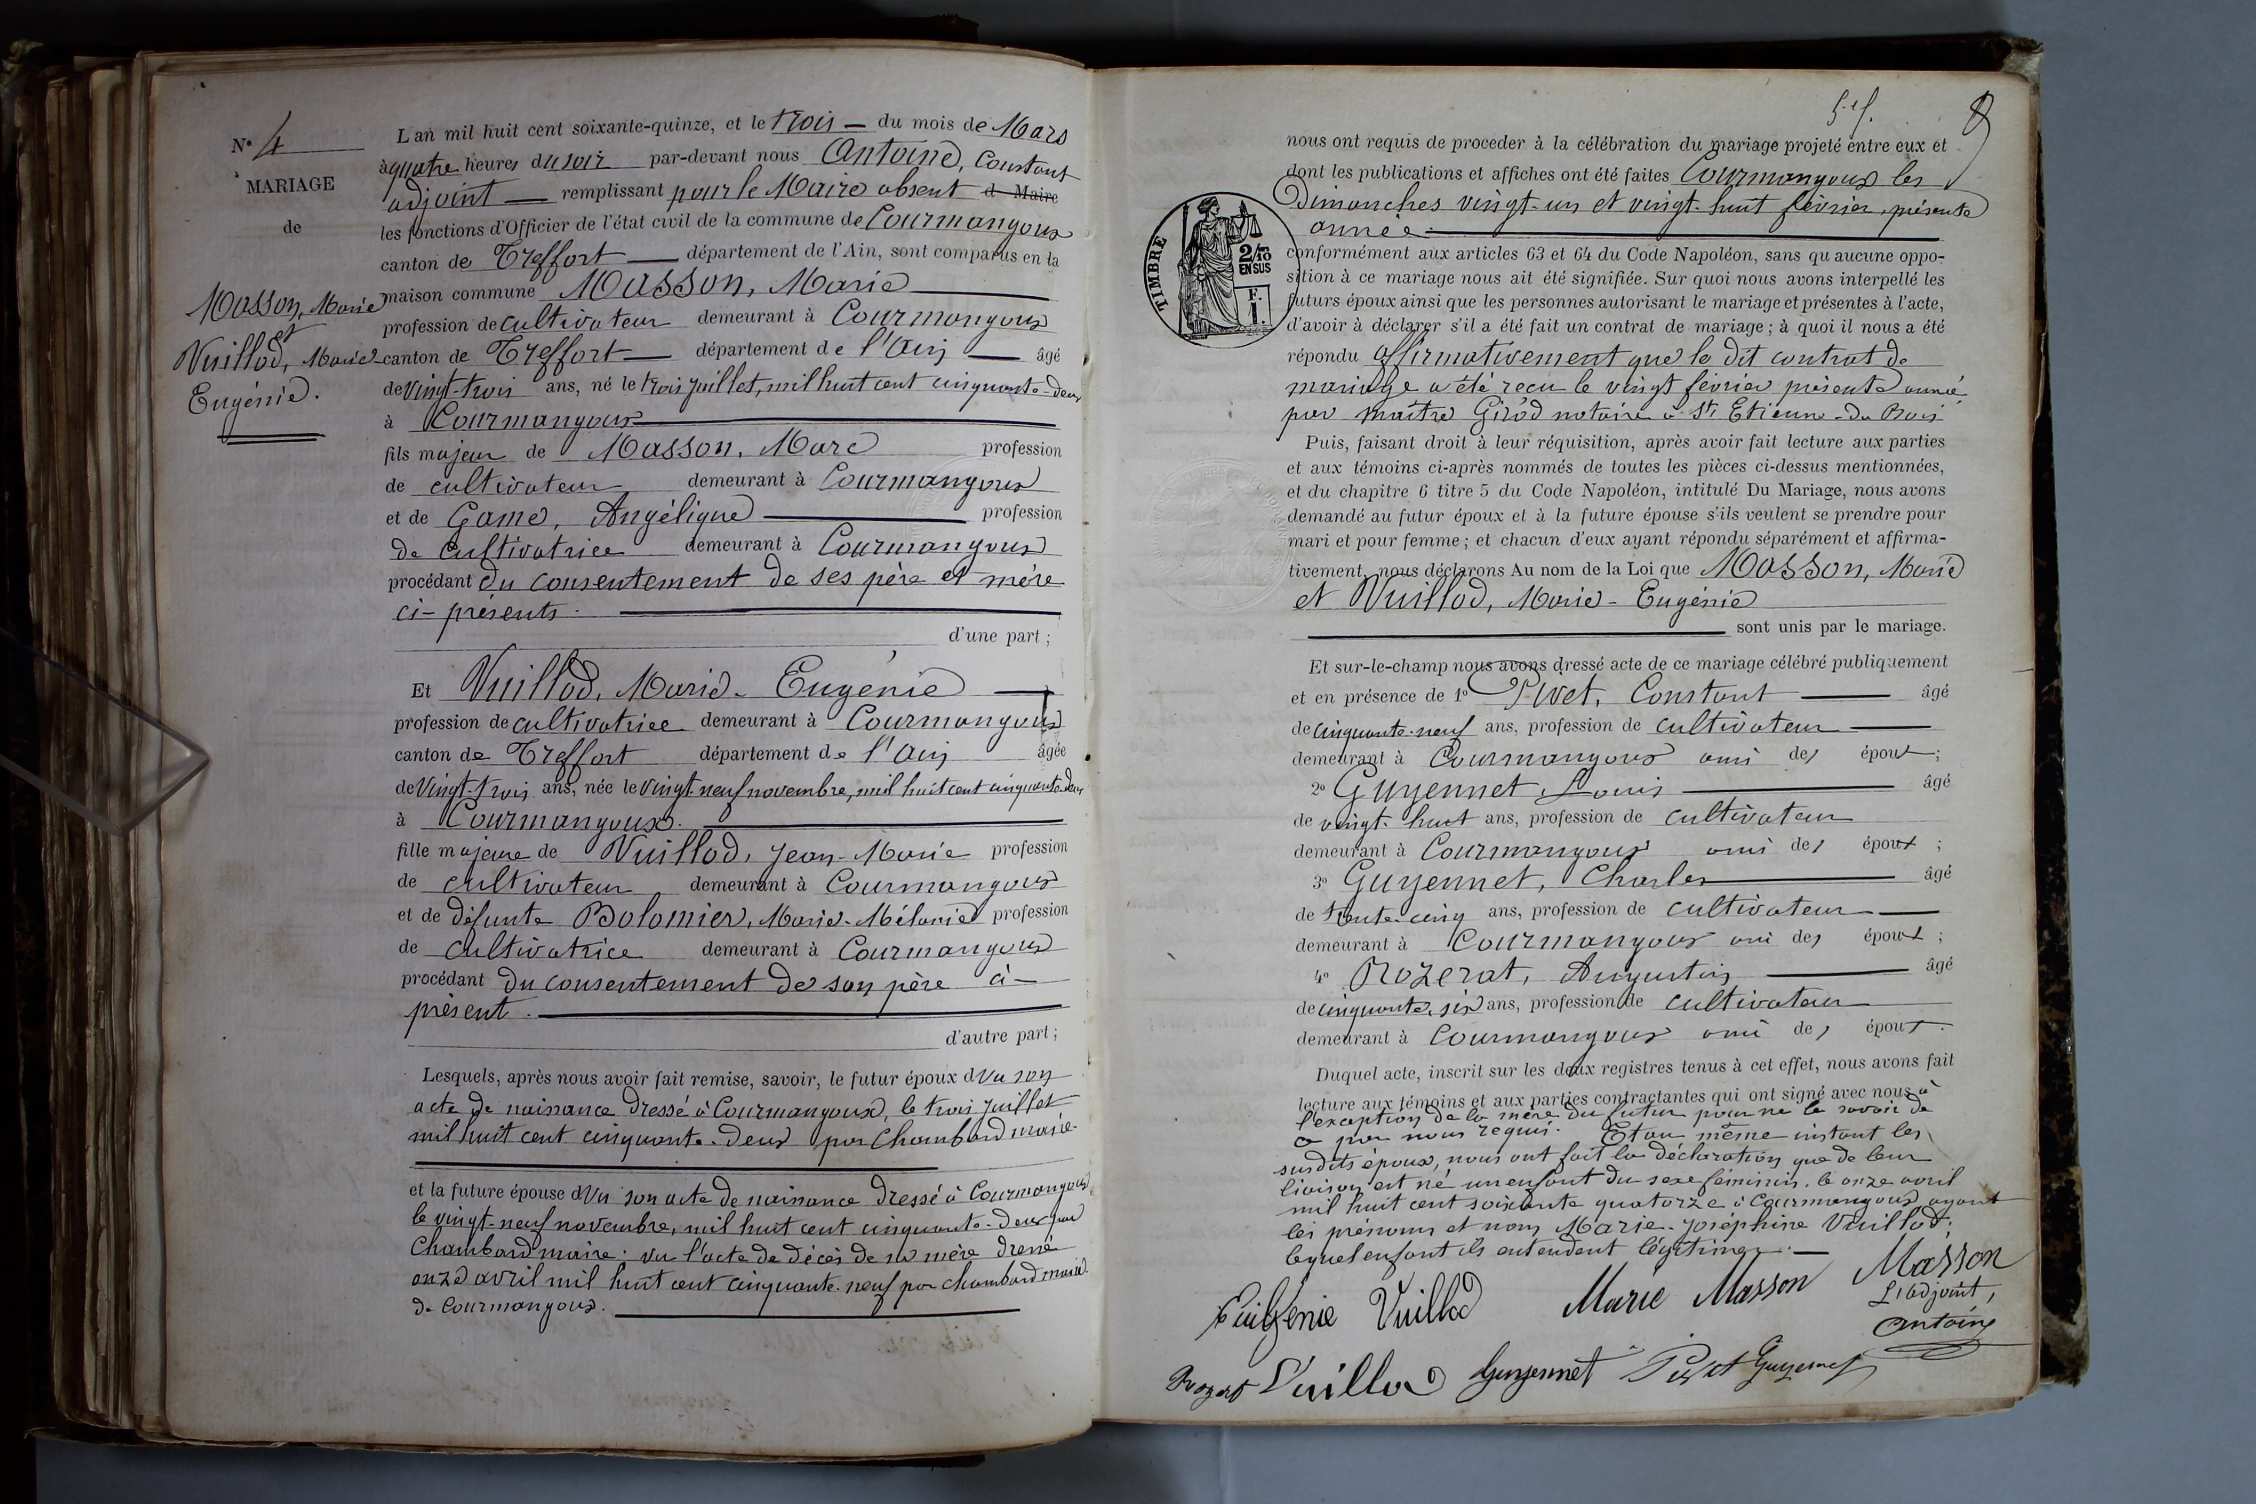 N° 4
MARIAGE
de
Masson, Marie
et
Vuillod, Marie
Eugénie.
L'an mil huit cent soixante-quinze, et le trois — du mois de Mars
à quatre heures du soir par-devant nous Antoine, Constant
adjoint — remplissant pour le Maire absent d Maire
les fonctions d'Officier de l'état civil de la commune de Courmangoux
canton de Treffort — département de l'Ain, sont comparus en la
maison commune Masson, Marie
profession de cultivateur demeurant à Courmangoux
canton de Treffort — département de l'Ain — âgé
de vingt-trois ans, né le trois juillet, mil huit cent cinquante-deux
à Courmangoux
fils majeur de Masson, Marc profession
de cultivateur demeurant à Courmangoux
et de Game, Angélique profession
de cultivatrice demeurant à Courmangoux
procédant du consentement de ses père et mère
ci-présents.
d'une part ;
Et Vuillod, Marie-Eugénie
profession de cultivatrice demeurant à Courmangoux
canton de Treffort département de l'Ain âgée
de vingt-trois ans, née le vingt-neuf novembre, mil huit cent cinquante-deux
à Courmangoux.
fille majeure de Vuillod, Jean-Marie profession
de cultivateur demeurant à Courmangoux
et de défunte Bolomier, Marie-Mélanie profession
de cultivatrice demeurant à Courmangoux
procédant du consentement de son père ci-
présent.
d'autre part ;
Lesquels, après nous avoir fait remise, savoir, le futur époux d Vu son
acte de naissance dressé à Courmangoux, le trois juillet
mil huit cent cinquante-deux par Chambard maire.
et la future épouse d Vu son acte de naissance dressé à Courmangoux
le vingt-neuf novembre, mil huit cent cinquante-deux par
Chambard maire. vu l'acte de décès de sa mère dressé
onze avril mil huit cent cinquante-neuf par Chambard maire
de Courmangoux.
8
nous ont requis de proceder à la célébration du mariage projeté entre eux et
dont les publications et affiches ont été faites Courmangoux les
Dimanches vingt-un et vingt-huit février, présente
année.
TIMBRE
2/10
EN SUS
F.
1.
conformément aux articles 63 et 64 du Code Napoléon, sans qu'aucune oppo-
sition à ce mariage nous ait été signifiée. Sur quoi nous avons interpellé les
futurs époux ainsi que les personnes autorisant le mariage et présentes à l'acte,
d'avoir à déclarer s'il a été fait un contrat de mariage ; à quoi il nous a été
répondu affirmativement que le dit contrat de
mariage a été reçu le vingt février présente année
par maître Girod notaire à St Etienne-du Bois
Puis, faisant droit à leur réquisition, après avoir fait lecture aux parties
et aux témoins ci-après nommés de toutes les pièces ci-dessus mentionnées,
et du chapitre 6 titre 5 du Code Napoléon, intitulé Du Mariage, nous avons
demandé au futur époux et à la future épouse s'ils veulent se prendre pour
mari et pour femme ; et chacun d'eux ayant répondu séparément et affirma-
tivement, nous déclarons Au nom de la Loi que Masson, Marie
et Vuillod, Marie-Eugénie
sont unis par le mariage.
Et sur-le-champ nous avons dressé acte de ce mariage célébré publiquement
et en présence de 1° Pivet, Constant — âgé
de cinquante-neuf ans, profession de cultivateur
demeurant à Courmangoux ami des époux ;
2° Guyennet, Louis — âgé
de vingt-huit ans, profession de cultivateur
demeurant à Courmangoux ami des époux ;
3° Guyennet, Charles — âgé
de trente-cinq ans, profession de cultivateur
demeurant à Courmangoux ami des époux ;
4° Rozerat, Augustin — âgé
de cinquante-six ans, profession de cultivateur
demeurant à Courmangoux ami des époux.
Duquel acte, inscrit sur les deux registres tenus à cet effet, nous avons fait
lecture aux témoins et aux parties contractantes qui ont signé avec nous à
l'exception de la mère du futur pour ne le savoir de
ce par nous requis. Et au même instant les
susdits époux, nous ont fait la déclaration que de leur
liaison est né un enfant du sexe féminin, le onze avril
mil huit cent soixante quatorze à Courmangoux ayant
les prénoms et nom Marie-Joséphine Vuillod;
lequel enfant ils entendent légitimer.
Eugenie Vuillod Marie Masson Masson
L'adjoint,
Antoine
Vuillod Guyennet Pivet Guyennet